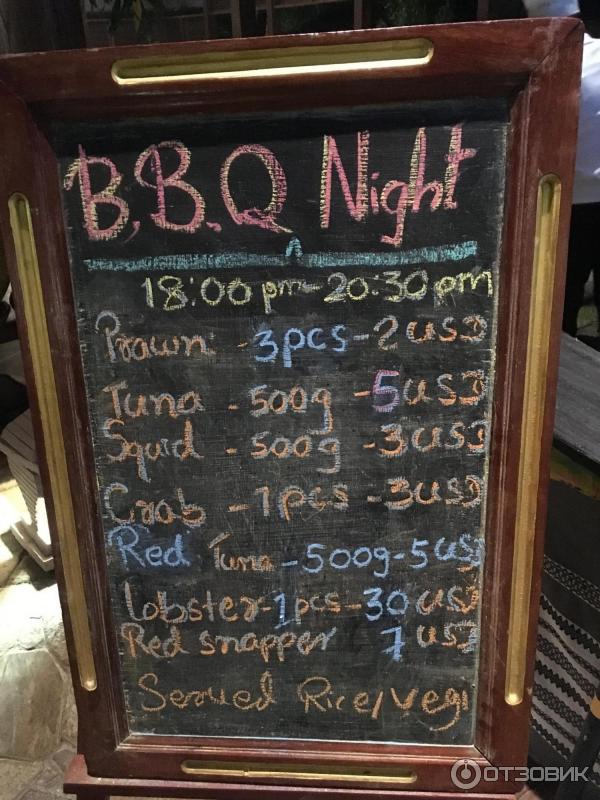 B.B.Q Night
18:00 pm - 20:30 pm
Prawn - 3pcs - 2 USD
Tuna - 500g - 5 USD
Squid - 500g - 3 USD
Crab - 1 pcs - 3 USD
Red Tuna - 500g - 5 USD
Lobster - 1 pcs - 30 USD
Red snapper 7 USD
Served Rice/Vegi
ОТЗОВИК